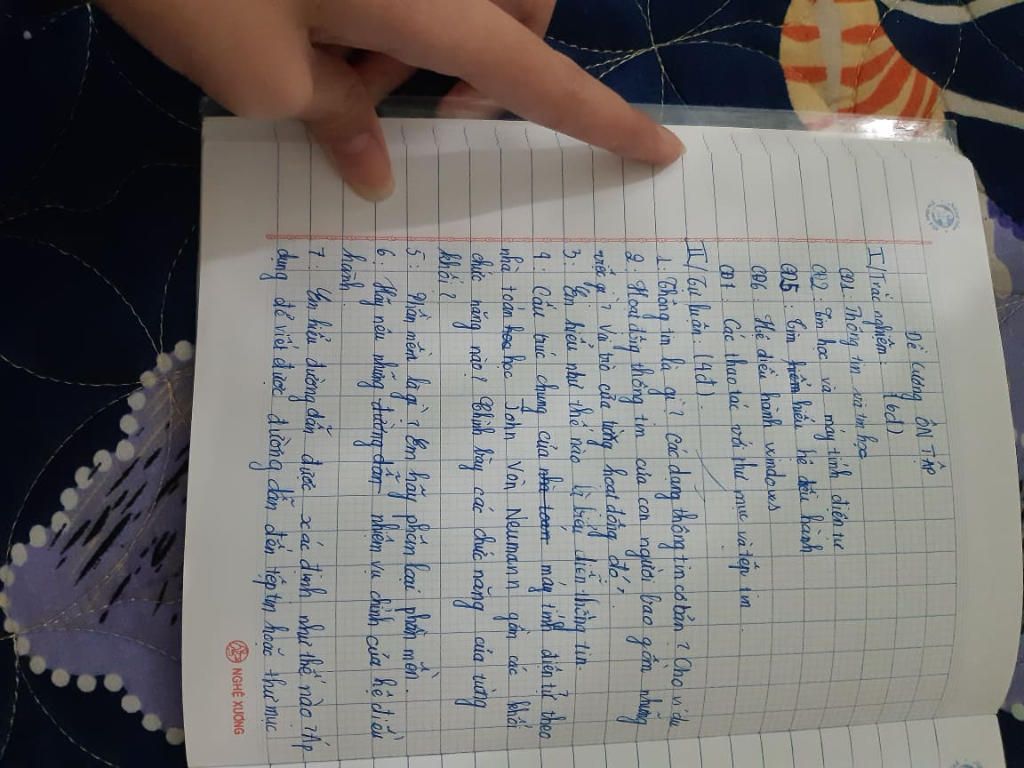 Đề Cương ÔN TẬP
I/ Trắc nghiệm. (6đ)
CĐ1. Thông tin và tin học
CĐ2: Em học và máy tính điện tử
CĐ5: Tìm hiểu hệ điều hành
CĐ6: Hệ điều hành windows
CĐ7: Các thao tác với thư mục và tệp tin.
II/ Tự luận: (4đ).
1. Thông tin là gì? Các dạng thông tin cơ bản? Cho ví dụ
2. Hoạt động thông tin của con người bao gồm những
việc gì? Vai trò của từng hoạt động đó.
3. Em hiểu như thế nào là biểu diễn thông tin.
4. Cấu trúc chung của máy tính điện tử theo
nhà toán học John Vôn Neumann gồm các khối
chức năng nào? Trình bày các chức năng của từng
khối?
5: Phần mềm là gì? Em hãy phân loại phần mềm.
6: Hãy nêu những nhiệm vụ chính của hệ điều
hành.
7. Em hiểu đường dẫn được xác định như thế nào? Áp
dụng để viết được đường dẫn đến tệp tin hoặc thư mục
NGHỆ XƯƠNG